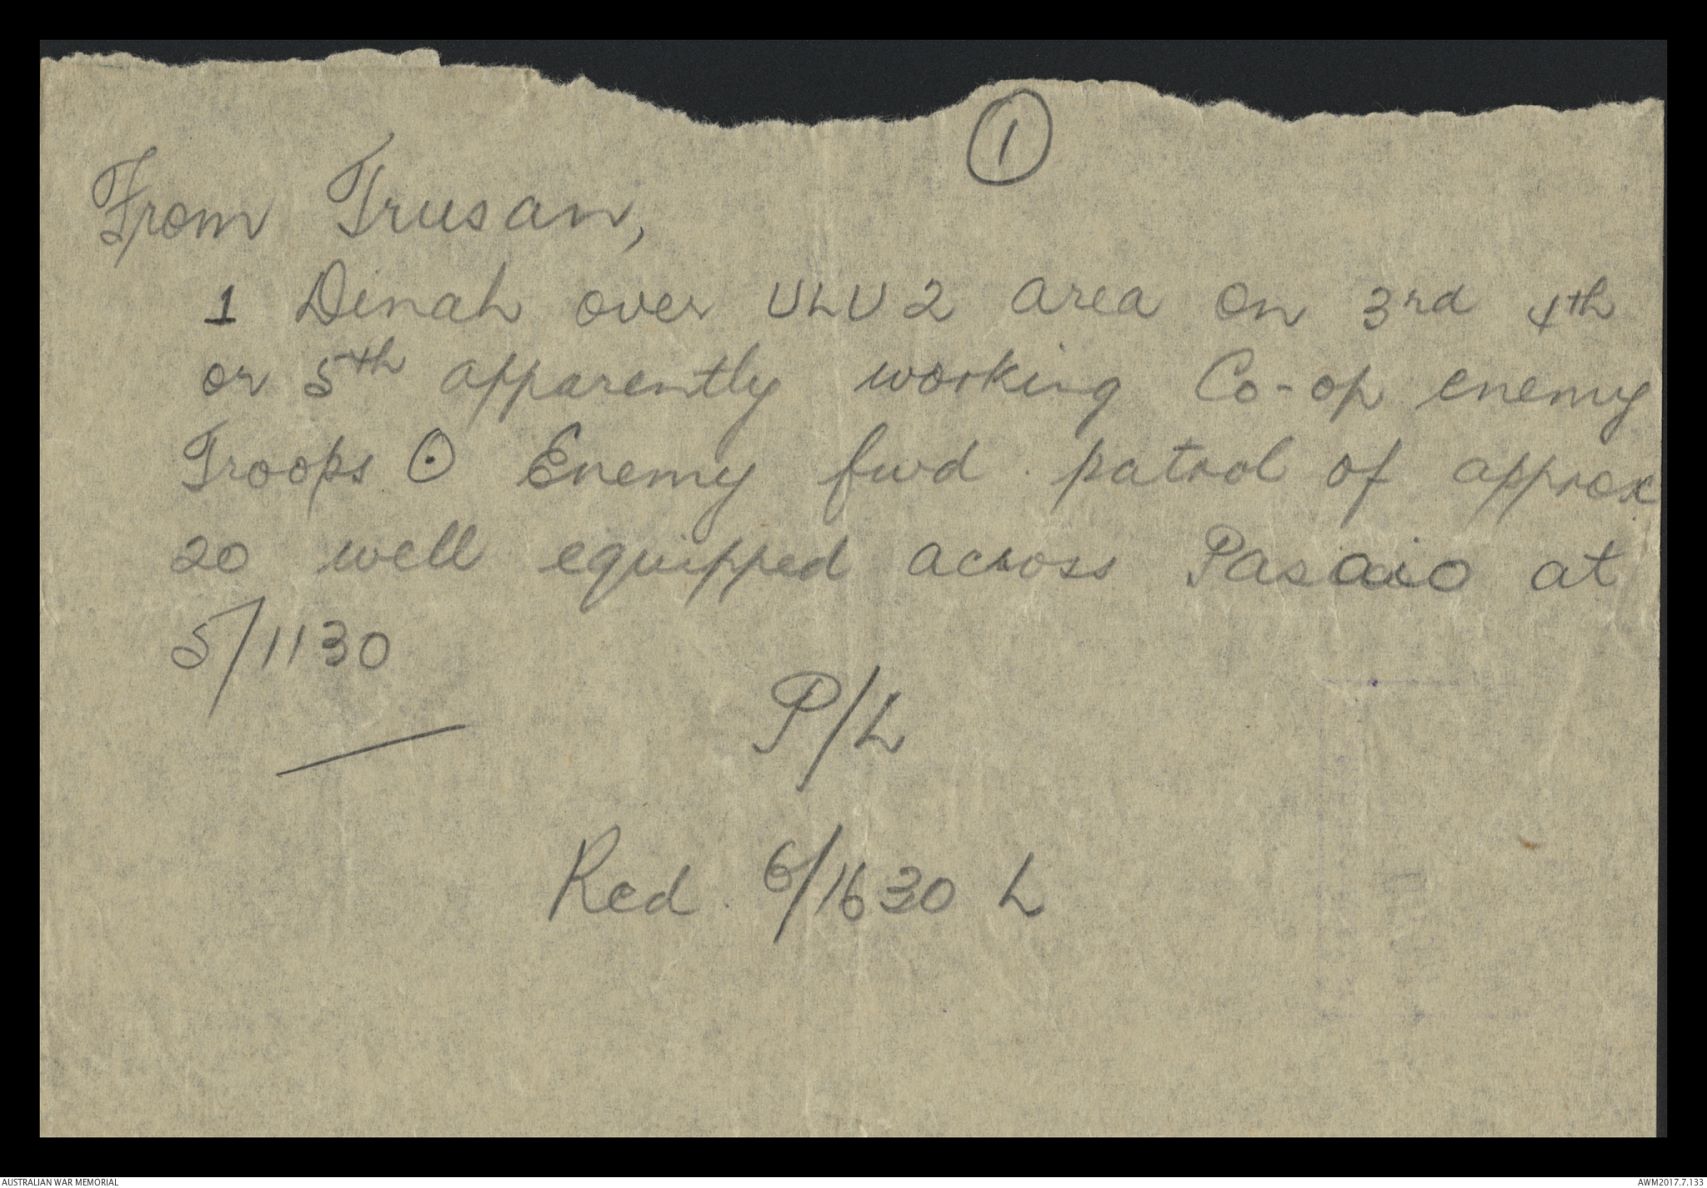 ①
From Trusan,
1 Dinah over ULU 2 area on 3rd 4th
or 5th apparently working Co-op enemy
Troops ⊙ Enemy fwd patrol of approx
20 well equipped across Pasaio at
5/1130
P/L
Rcd 6/1630 L
AUSTRALIAN WAR MEMORIAL
AWM2017.7.133